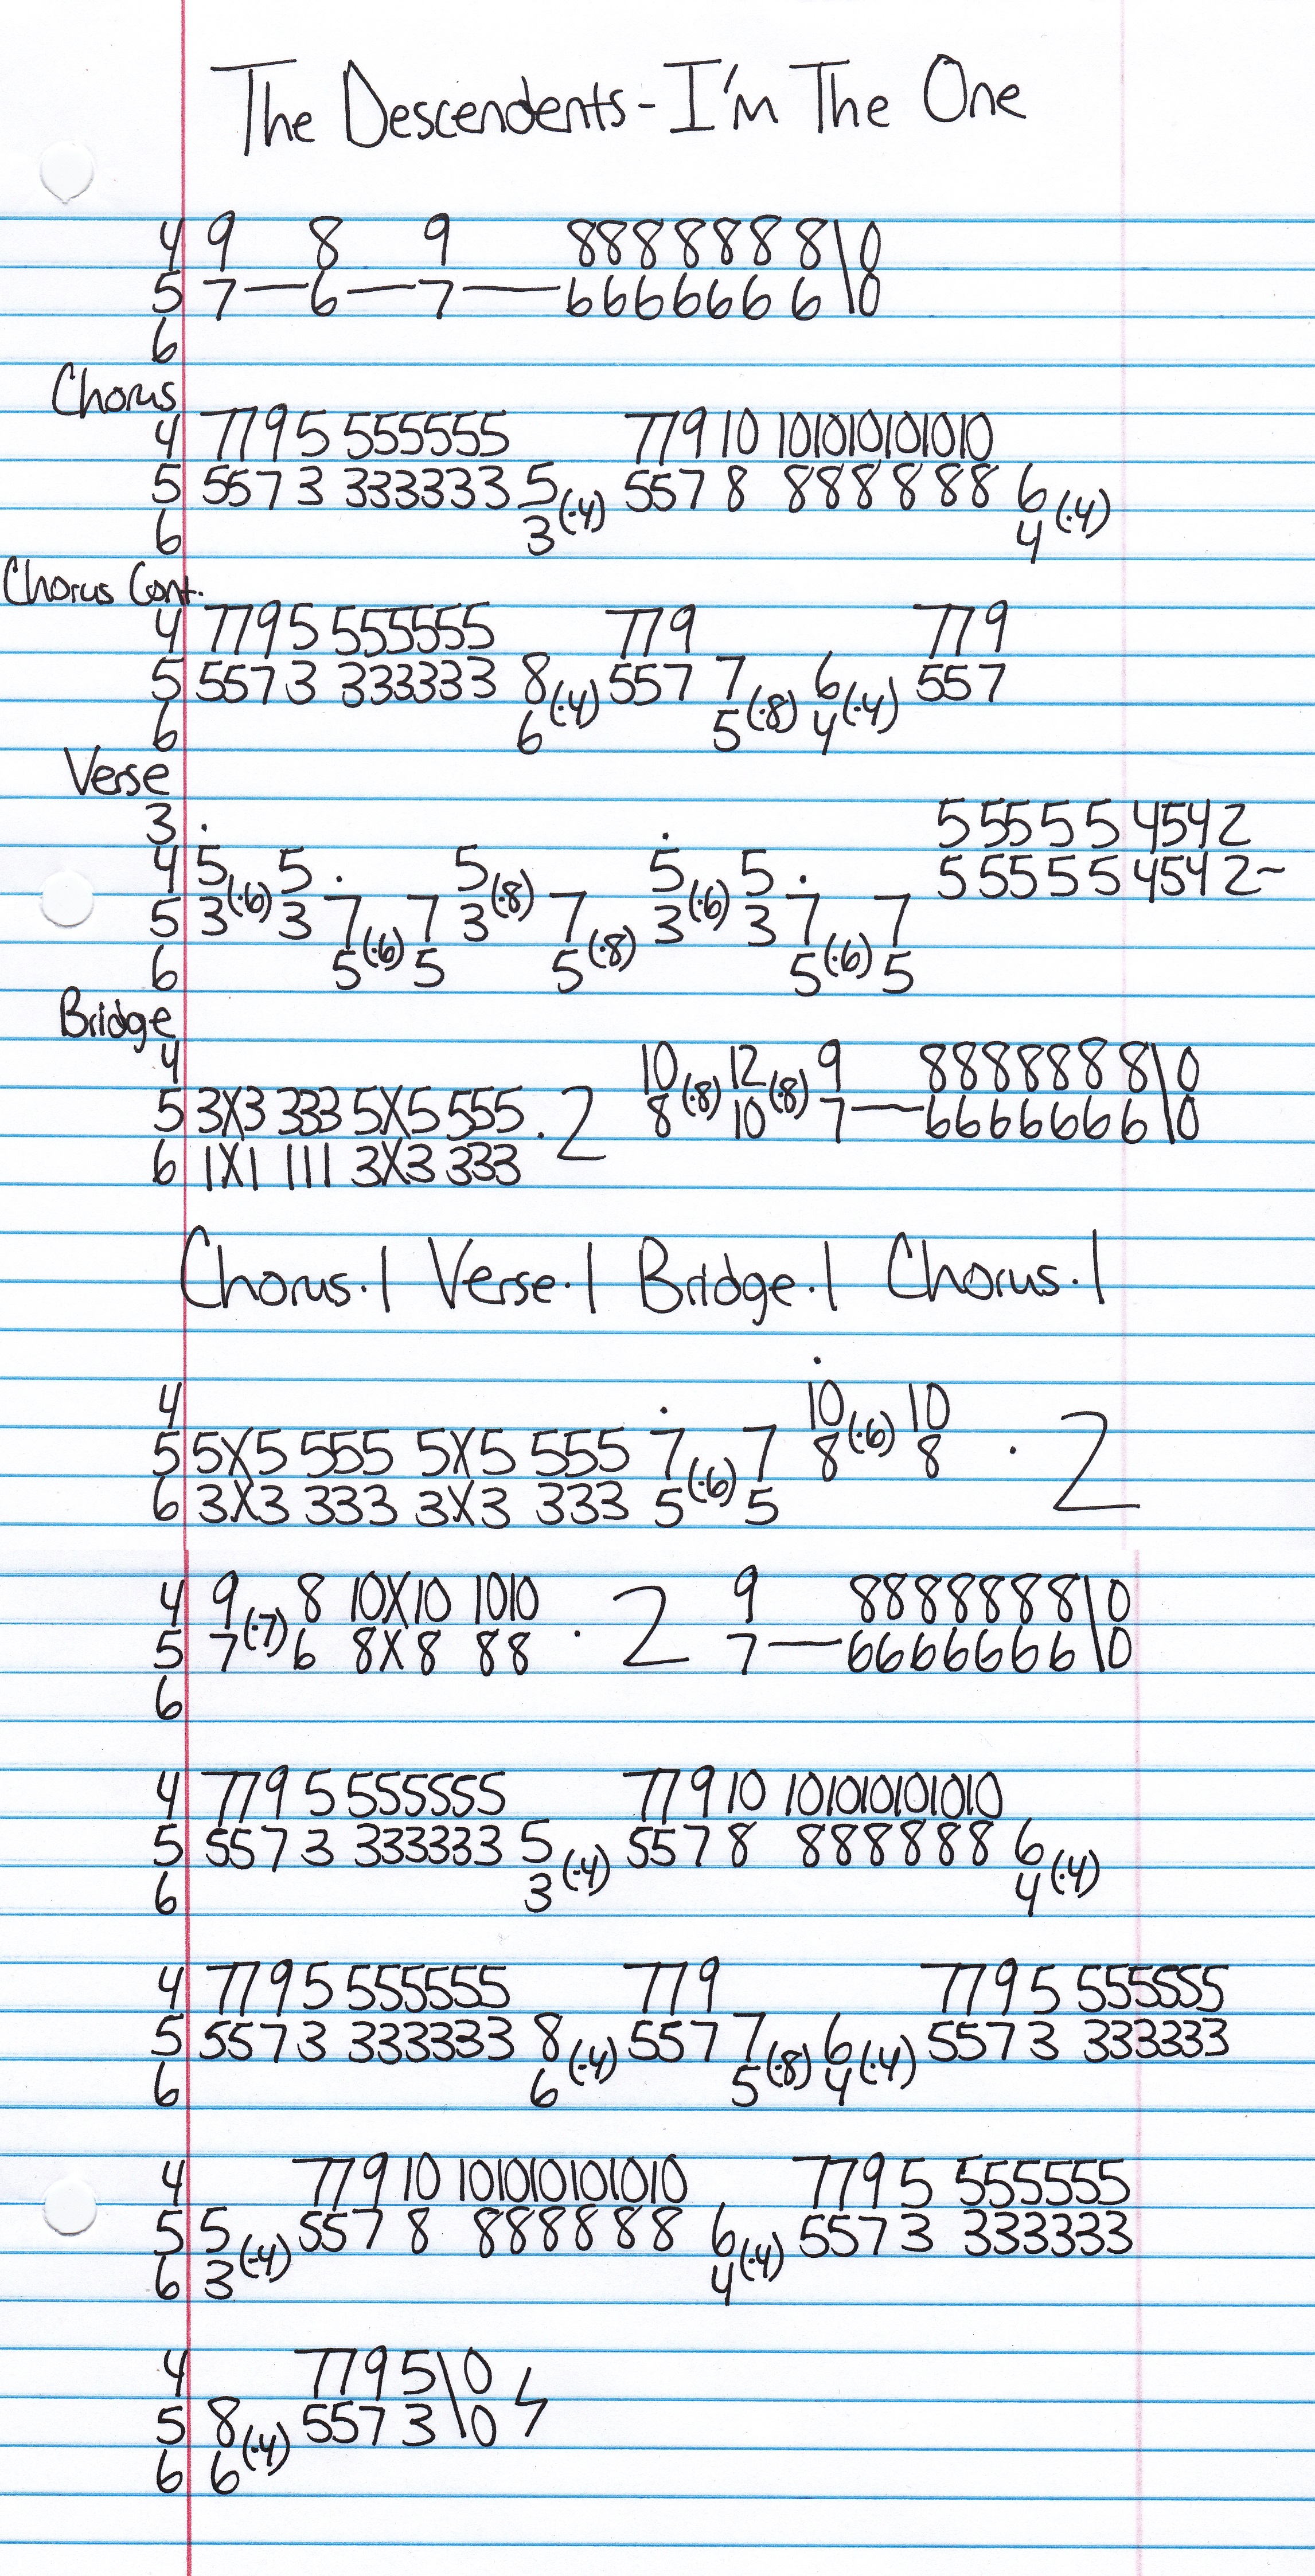 The Descendents - I'm The One
4 9 8 9 8888888\0
5 7—6—7—6666666\0
6
Chorus
4 7795 555555 77910 101010101010
5 5573 333333 5(·4) 5578 888888 6(·4)
6 3 4
Chorus Cont.
4 7795 555555 779 779
5 5573 333333 8(·4) 557 7(·8) 6(·4) 557
6 6 5 4
Verse
3 . . 5 555 5 5 4542
4 5(·6) 5 . 5(·8) 5(·6) 5 . 5 555 5 5 4542~
5 3 3 7(·6) 7 3 7(·8) 3 3 7(·6) 7
6 5 5 5 5 5
Bridge
4 10(·8) 12(·8) 9 8888888\0
5 3X3 333 5X5 555 . 2 8 10 7—6666666\0
6 1X1 111 3X3 333
Chorus·1 Verse·1 Bridge·1 Chorus·1
.
4 . 10(·6) 10
5 5X5 555 5X5 555 7(·6) 7 8 8 · 2
6 3X3 333 3X3 333 5 5
4 9(·7) 8 10X10 1010 · 2 9 8888888\0
5 7 6 8X8 88 7—6666666\0
6
4 7795 555555 77910 101010101010
5 5573 333333 5(·4) 5578 888888 6(·4)
6 3 4
4 7795 555555 779 7795 555555
5 5573 333333 8(·4) 557 7(·8) 6(·4) 5573 333333
6 6 5 4
4 77910 101010101010 7795 555555
5 5(·4) 5578 888888 6(·4) 5573 333333
6 3 4
4 7795\0
5 8(·4) 5573\0
6 6